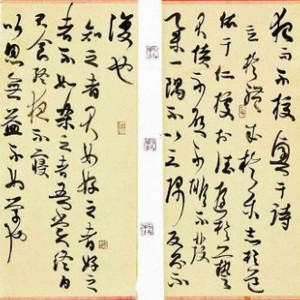 犯而不校興于詩
立於禮成於樂志於道
依于仁據於德遊於藝
不憤不啟不悱不發
舉一隅不以三隅反則不
復也
知之者不如好之者好之
者不如樂之者吾嘗終日
不食終夜不寢
以思無益不如學也